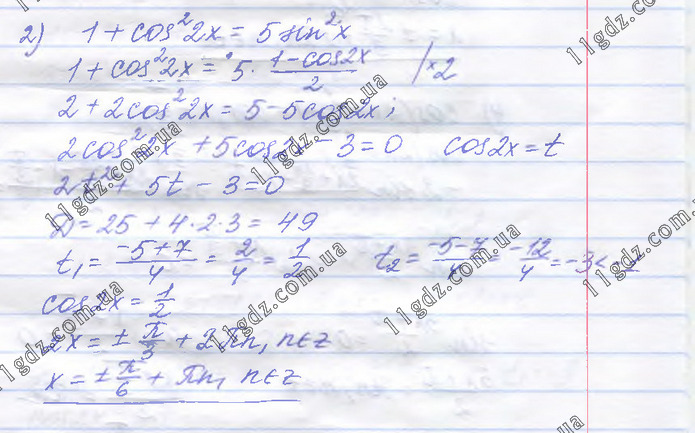 2) 1 + cos²2x = 5 sin²x
1 + cos²2x = 5 · (1 - cos2x)/2 | × 2
2 + 2cos²2x = 5 - 5cos2x;
2cos²2x + 5cos2x - 3 = 0 cos2x = t
2t² + 5t - 3 = 0
D = 25 + 4·2·3 = 49
t₁ = (-5+7)/4 = 2/4 = 1/2 t₂ = (-5-7)/4 = -12/4 = -3 < -1
cos2x = 1/2
2x = ± π/3 + 2πn, n∈z
x = ± π/6 + πn, n∈z
11gdz.com.ua
11gdz.com.ua
11gdz.com.ua
11gdz.com.ua
11gdz.com.ua
11gdz.com.ua